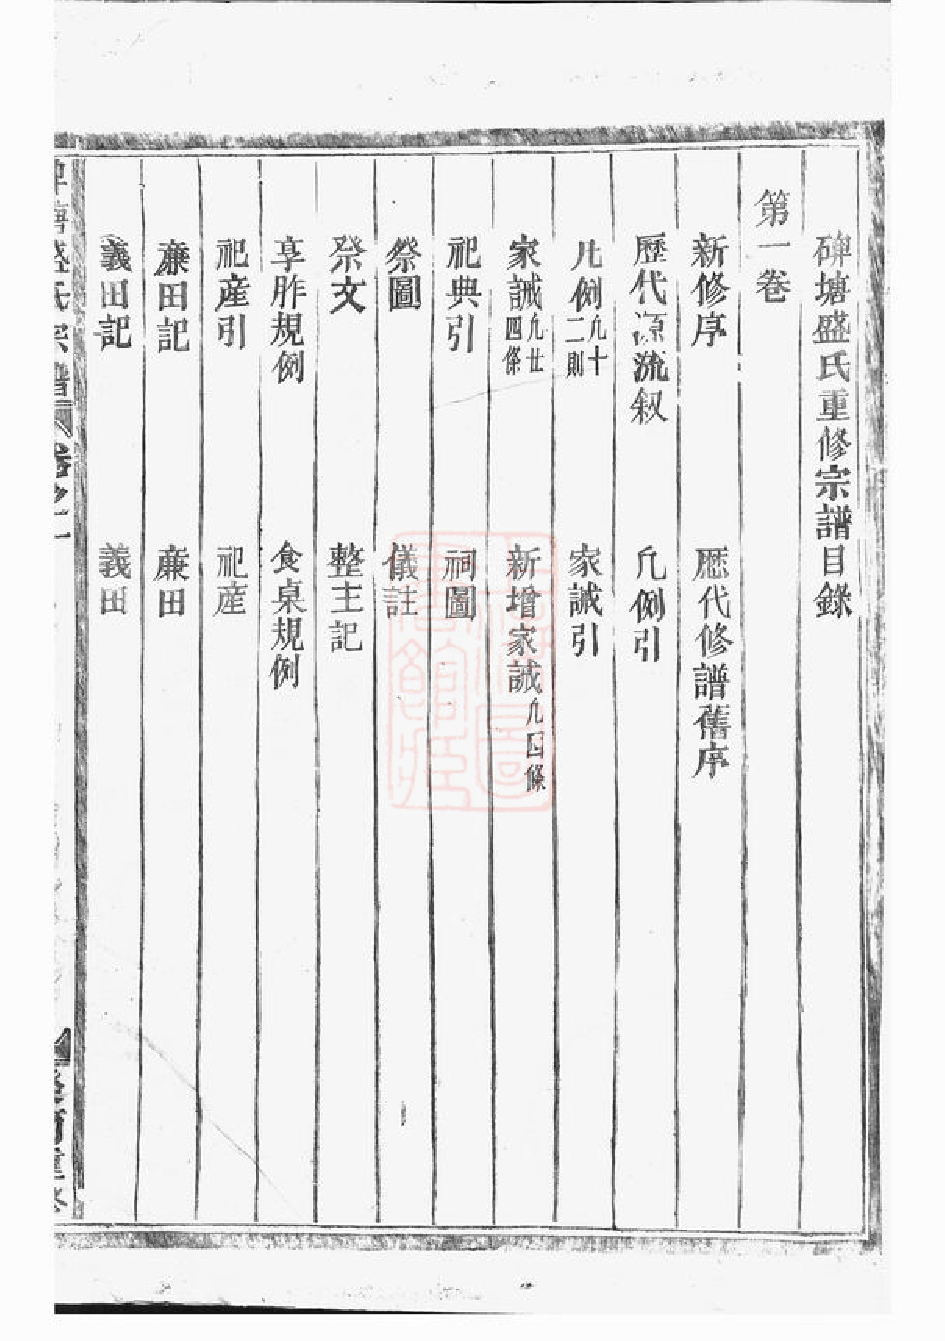 碑塘盛氏重修宗譜目錄
第一卷
新修序　歷代修譜舊序
歷代源流叙　凡例引
凡例凡十二則　家誡引
家誡凡廿四條　新增家誡凡四條
祀典引　祠圖
祭圖　儀註
祭文　整主記
享胙規例　食桌規例
祀產引　祀產
廉田記　廉田
義田記　義田
碑塘盛氏宗譜　卷之一　重修